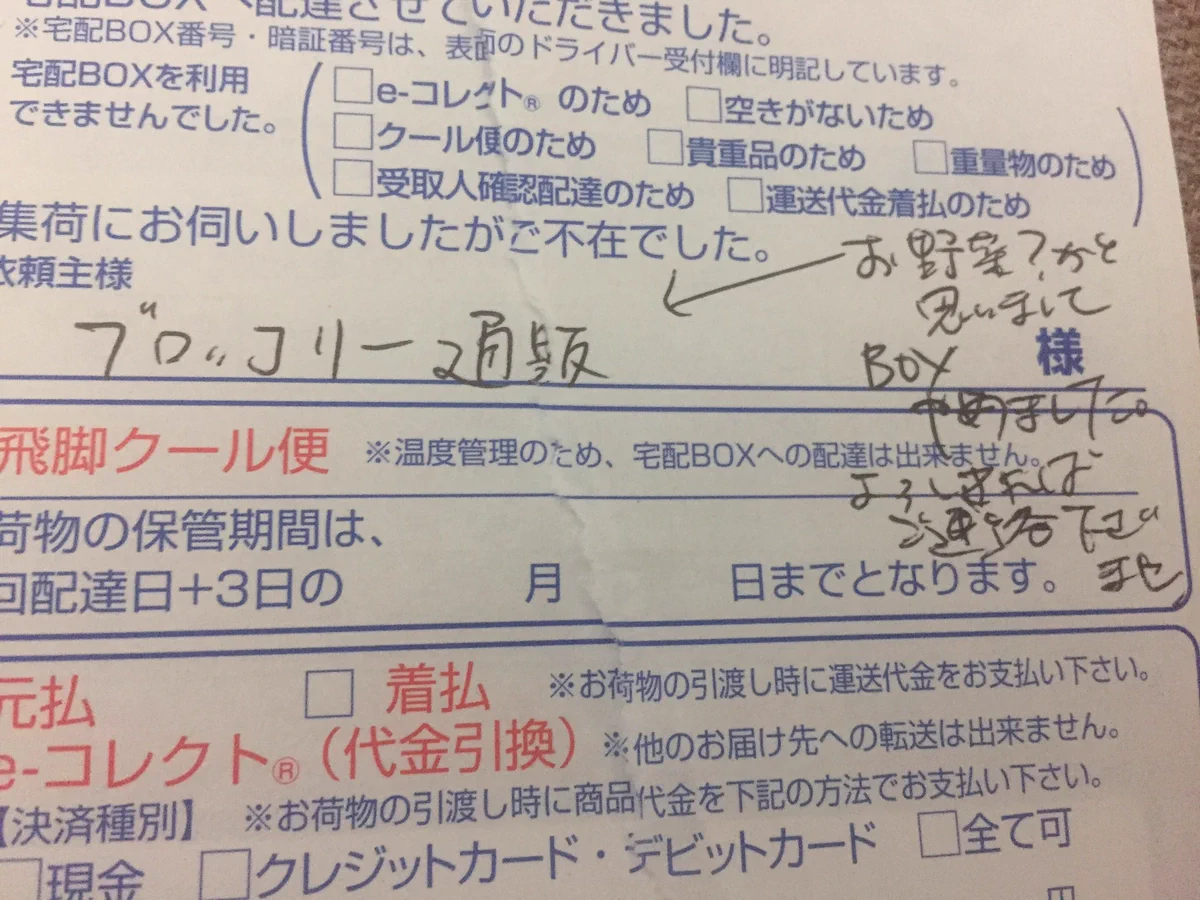 宅配BOXへ配達させていただきました。
※宅配BOX番号・暗証番号は、表面のドライバー受付欄に明記しています。
宅配BOXを利用
できませんでした。
□e-コレクト® のため □空きがないため
□クール便のため □貴重品のため □重量物のため
□受取人確認配達のため □運送代金着払のため
集荷にお伺いしましたがご不在でした。
依頼主様
ブロッコリー通販
お野菜?かと
思いまして
BOX
様
やめました。
飛脚クール便 ※温度管理のため、宅配BOXへの配達は出来ません。
よろしければ
ご連絡下さい
ませ
荷物の保管期間は、
回配達日+3日の 月 日までとなります。
元払 □ 着払 ※お荷物の引渡し時に運送代金をお支払い下さい。
e-コレクト®(代金引換) ※他のお届け先への転送は出来ません。
【決済種別】 ※お荷物の引渡し時に商品代金を下記の方法でお支払い下さい。
□現金 □クレジットカード・デビットカード □全て可